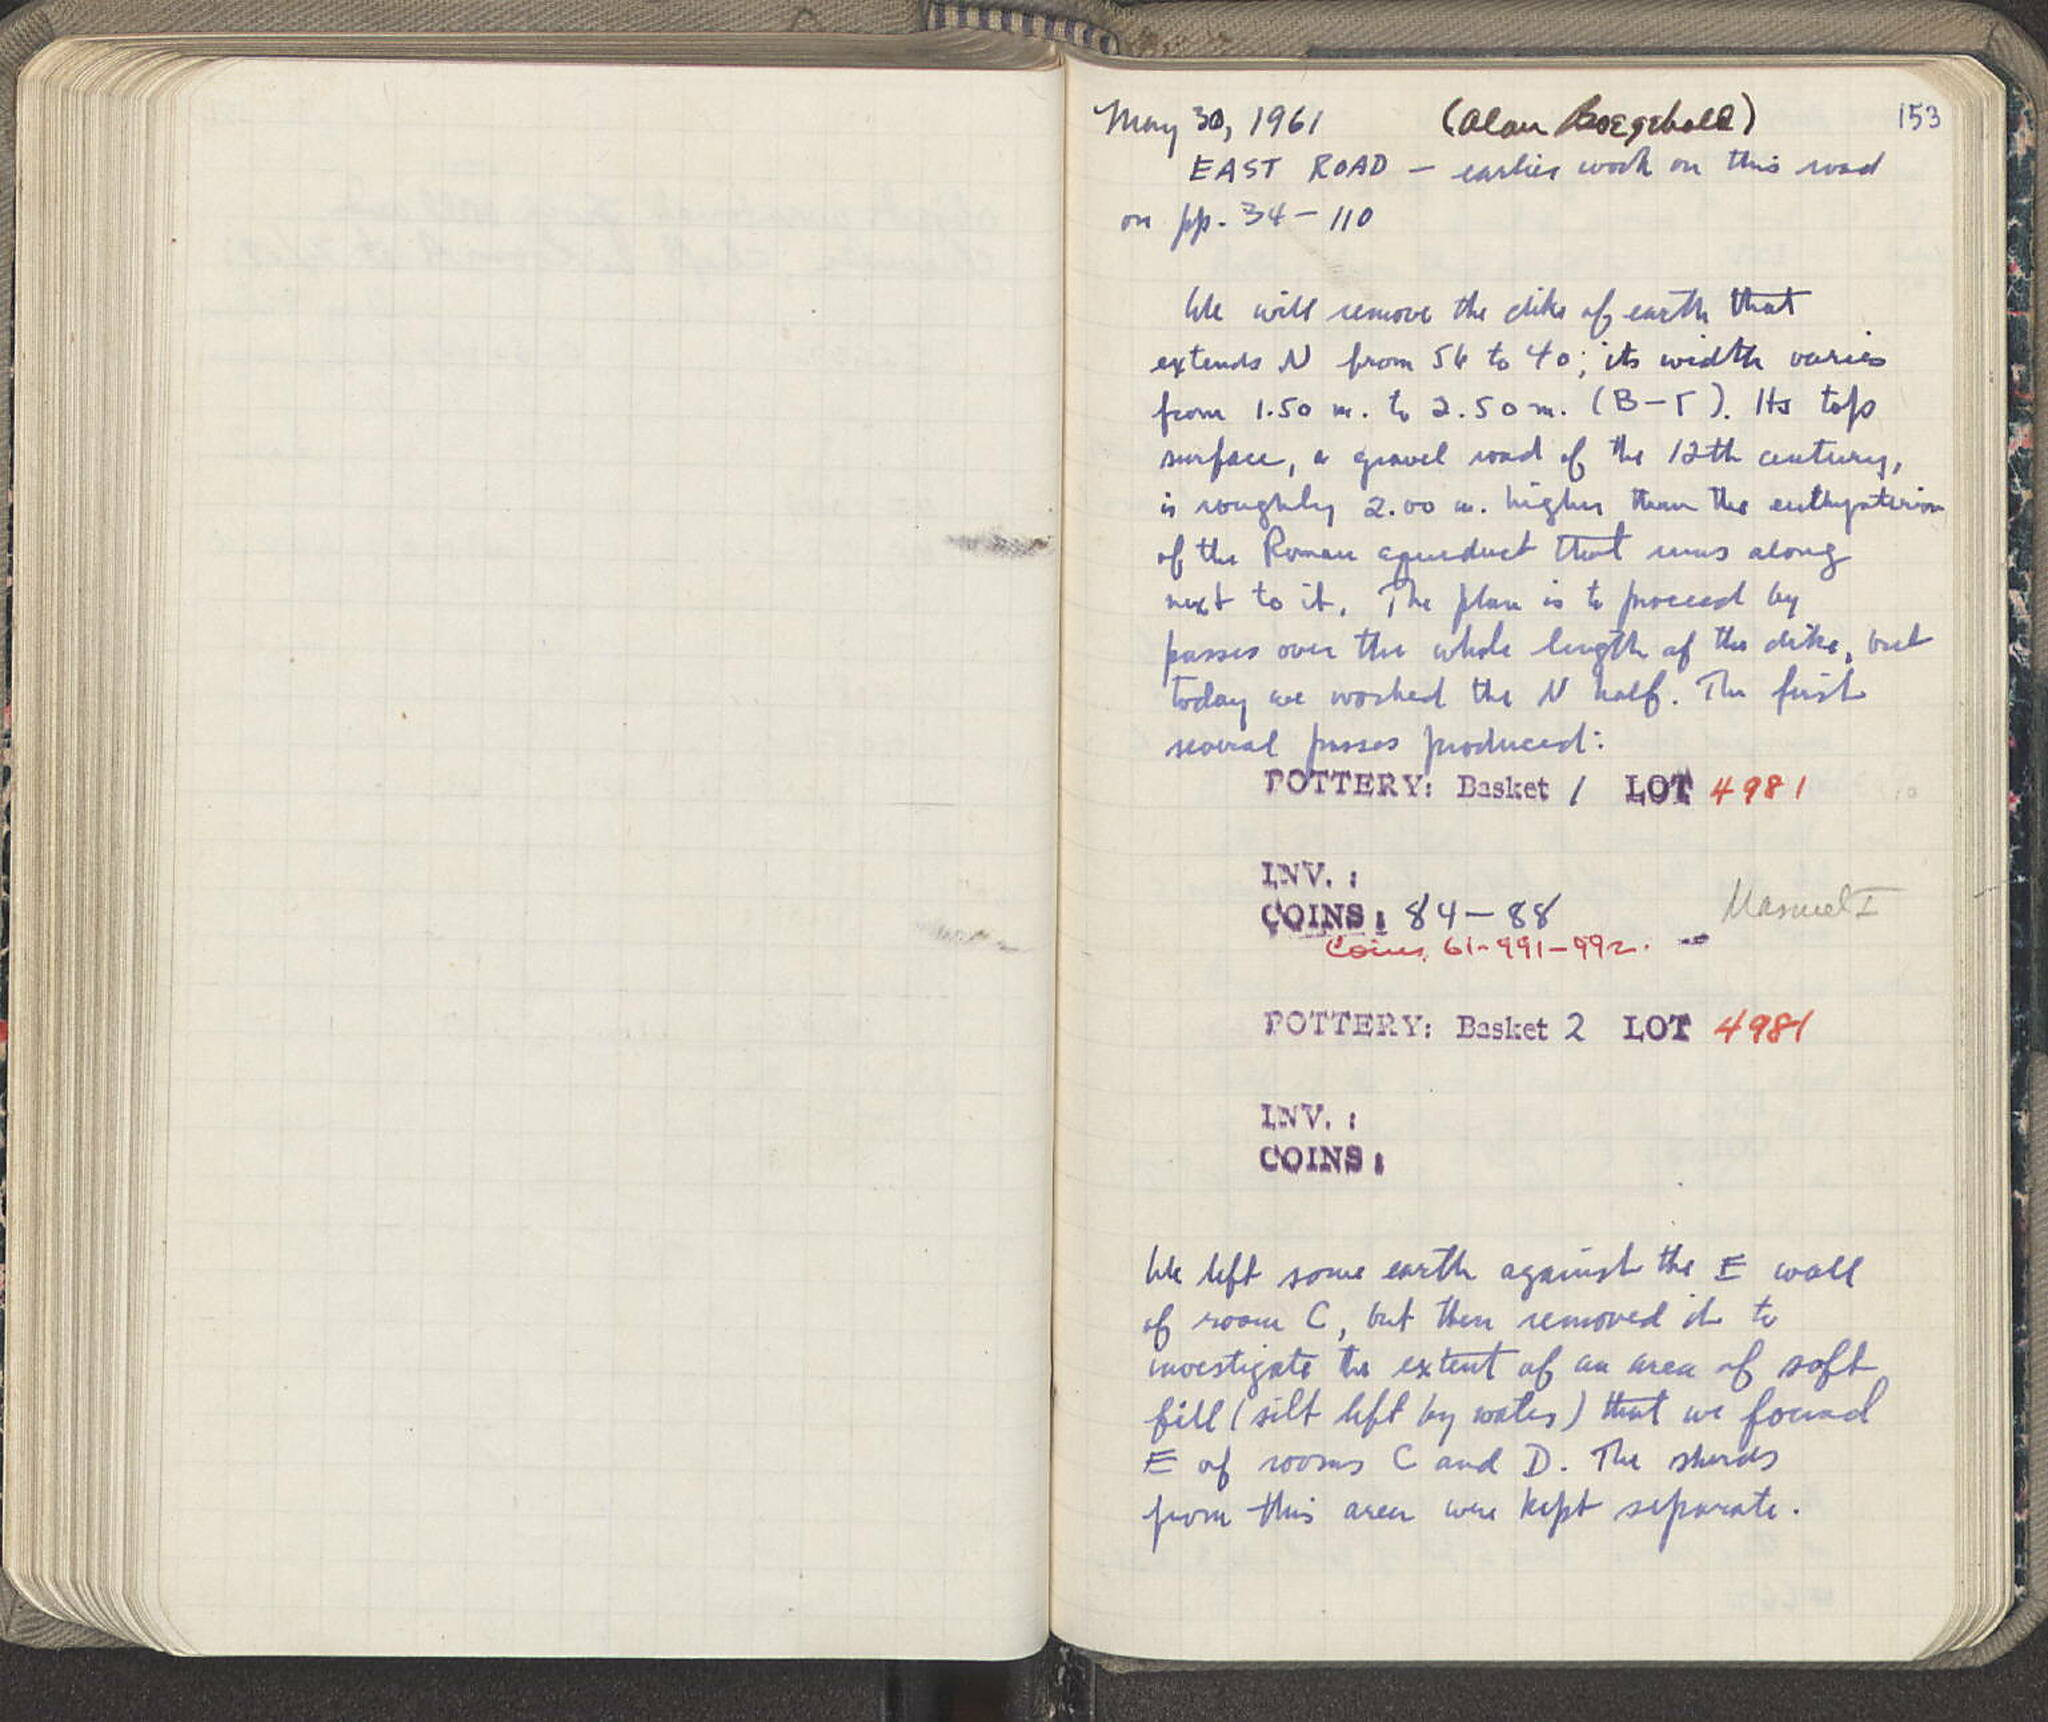 May 30, 1961 (Alan Boegehold) 153
EAST ROAD — earlier work on this road
on pp. 34-110
We will remove the dike of earth that
extends N from 56 to 40; its width varies
from 1.50 m. to 2.50 m. (B-Γ). Its top
surface, a gravel road of the 12th century,
is roughly 2.00 m. higher than the euthynteria
of the Roman aqueduct that runs along
next to it. The plan is to proceed by
passes over the whole length of the dike, but
today we worked the N half. The first
several passes produced:
POTTERY: Basket 1 LOT 4981
INV. :
COINS: 84-88 Manuel I
Coins 61-991-992.
POTTERY: Basket 2 LOT 4981
INV. :
COINS:
We left some earth against the E wall
of room C, but then removed it to
investigate the extent of an area of soft
fill (silt left by water) that we found
E of rooms C and D. The sherds
from this area were kept separate.